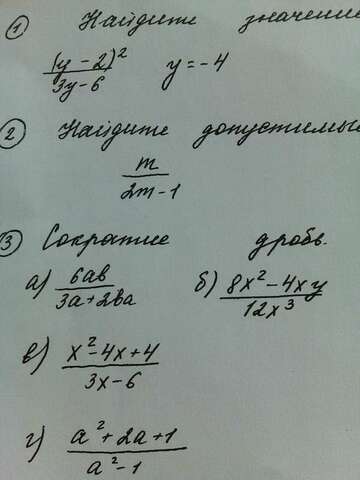 ① Найдите значение
(y - 2)² / 3y - 6 y = -4
② Найдите допустимые
m / 2m - 1
③ Сократите дробь.
а) 6ab / 3a + 2ba б) 8x² - 4xy / 12x³
в) x² - 4x + 4 / 3x - 6
г) a² + 2a + 1 / a² - 1